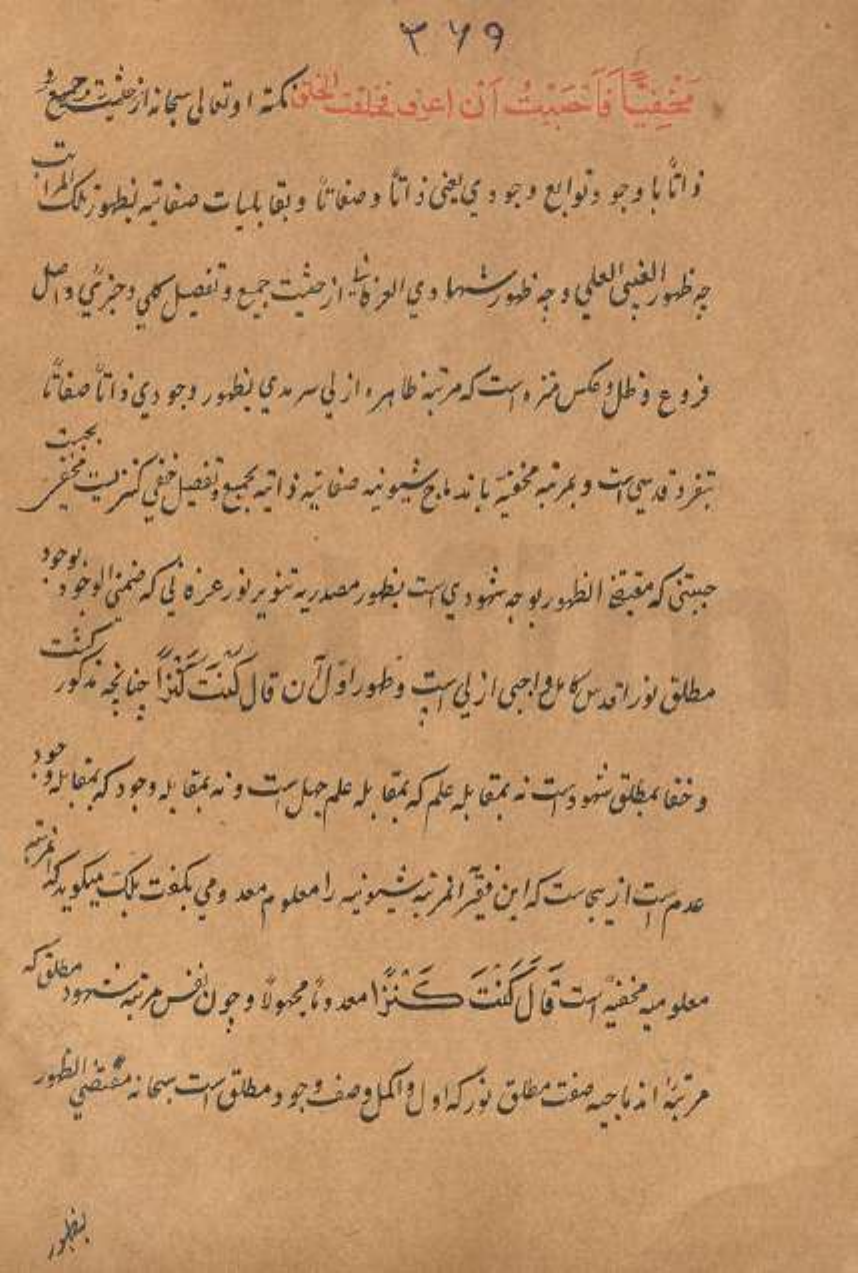 ۳۶۹
مَخْفِيّاً فَاَحْبَبْتُ اَنْ اعرف فخلقت الخلق نکته او تعالی سبحانه از حیثیت جمیع
ذاتاً با وجود توابع وجودی یعنی ذاتاً و صفاتاً و بقابلیات صفاتیه بظهور تلک المراتب
چه ظهور الغیبی العلمی و چه ظهور شهادی از حیثیت جمیع و تفصیل کلی و جزئی و اصل
فروع و ظل و عکس منزه است که مرتبه ظاهره ازلی سرمدی بظهور وجودی ذاتاً صفاتاً
بتفرد قدسی است و بمرتبه مخفیه باندماج شیونیه صفاتیه ذاتیه بجمیع و تفصیل خفی کنزیت مخفی بحیث
حبیتی که مقتضی الظهور بوجه شهودی است بظهور مصدریه تنویر نور که ضمنی الوجود بوجود
مطلق نور اقدس کامل واجبی ازلی است و ظهور اول آن قال کُنْتَ کَنْزاً چنانچه مذکور گشت
و خفا بمطلق شهود است نه بمقابله علم که بمقابله علم جهل است و نه بمقابله وجود که بمقابله وجود
عدم است از ینجاست که این فقیر آنمرتبه شیونیه را معلوم معدومی بگفت بلک میگوید که آنمرتبه
معلومیه مخفیه است قَالَ کُنْتَ کَنْزًا معدوماً مجهولاً و چون نفس مرتبه شهود مطلق که
مرتبۀ اندماجیه صفت مطلق نور که اول و اکمل وصف وجود مطلق است سبحانه مقتضی الظهور
بظهور